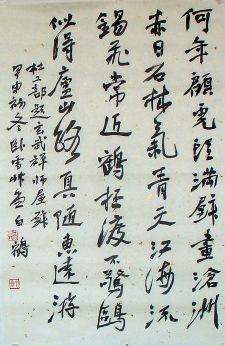 何年顧虎頭滿鎮畫滄洲
赤日石林氣青天江海流
錫飛常近鶴杯渡不驚鷗
似得廬山路真隨惠遠游
杜工部題玄武禪師屋壁
甲申初冬卧雪
白鶴